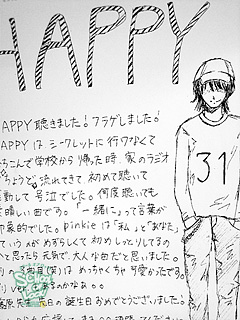 HAPPY
HAPPY聴きました！フラゲしました！
HAPPYは、シークレットに行けなくて
ちこんで学校から帰った時、家のラジオ
ちょうど流れてきて初めて聴いて
動して号泣でした。何度聴いても
晴しい曲です。「一緒に」って言葉が
象的でした。pinkieは「私」と「あなた」
ていうのがめずらしくて初めしっとりしてるの
と思ったら元気で、大人な曲だと思いました。
(笑)はめっちゃくちゃ可愛かったです。
あるのかなぁ…
原先
誕生日おめでとうございました。
31